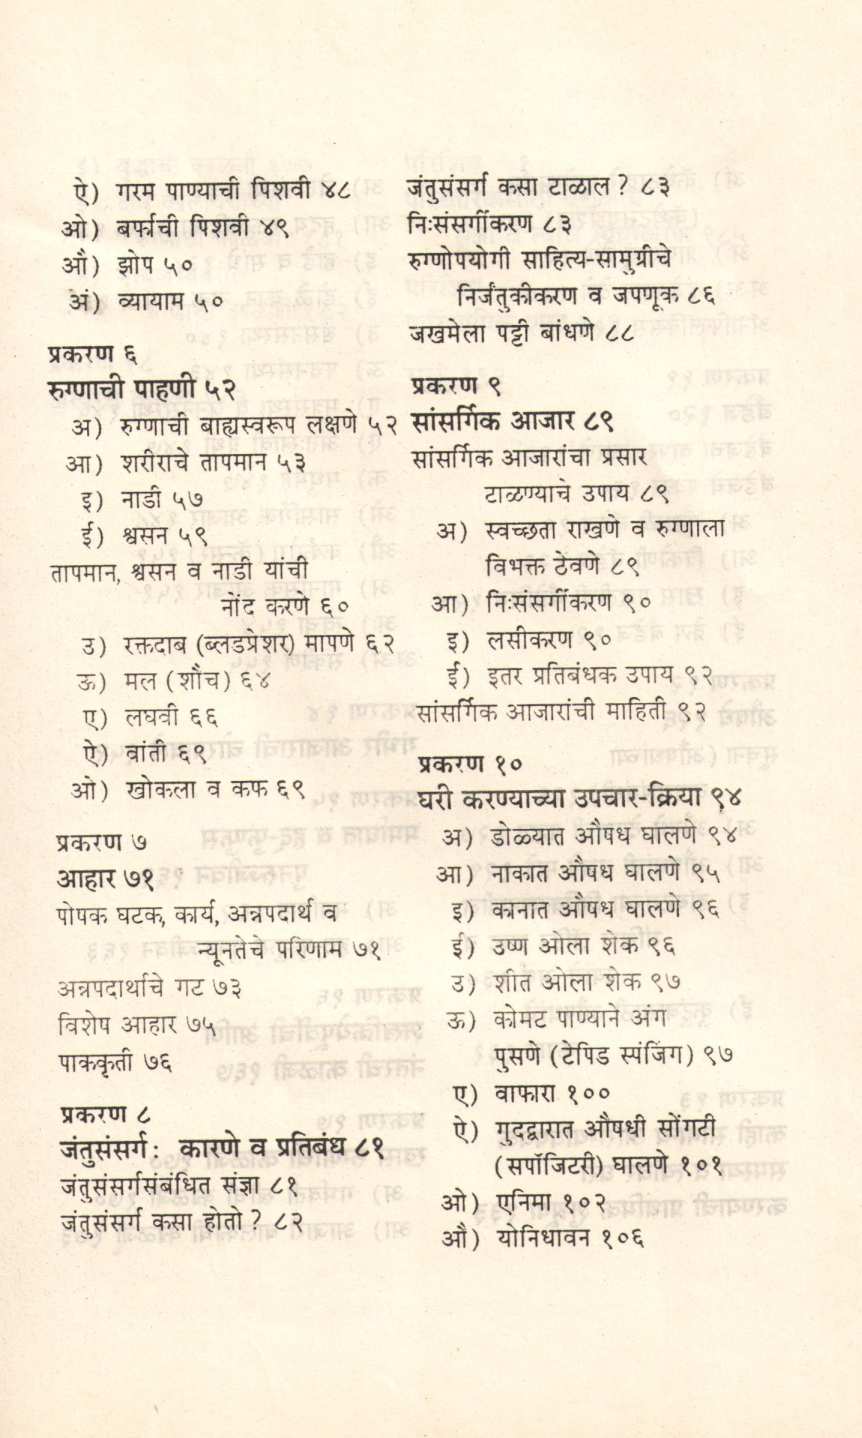 ऐ) गरम पाण्याची पिशवी ४८
ओ) बर्फाची पिशवी ४९
औ) झोप ५०
अं) व्यायाम ५०
प्रकरण ६
रुग्णाची पाहणी ५२
अ) रुग्णाची बाह्यस्वरूप लक्षणे ५२
आ) शरीराचे तापमान ५३
इ) नाडी ५७
ई) श्वसन ५९
तापमान, श्वसन व नाडी यांची
नोंद करणे ६०
उ) रक्तदाब (ब्लडप्रेशर) मापणे ६२
ऊ) मल (शौच) ६४
ए) लघवी ६६
ऐ) वांती ६९
ओ) खोकला व कफ ६९
प्रकरण ७
आहार ७१
पोषक घटक, कार्य, अन्नपदार्थ व
न्यूनतेचे परिणाम ७१
अन्नपदार्थाचे गट ७३
विशेष आहार ७५
पाककृती ७६
प्रकरण ८
जंतुसंसर्ग: कारणे व प्रतिबंध ८१
जंतुसंसर्गसंबंधित संज्ञा ८१
जंतुसंसर्ग कसा होतो ? ८२
जंतुसंसर्ग कसा टाळाल ? ८३
निःसंसर्गीकरण ८३
रुग्णोपयोगी साहित्य-सामुग्रीचे
निर्जंतुकीकरण व जपणूक ८६
जखमेला पट्टी बांधणे ८८
प्रकरण ९
सांसर्गिक आजार ८९
सांसर्गिक आजारांचा प्रसार
टाळण्याचे उपाय ८९
अ) स्वच्छता राखणे व रुग्णाला
विभक्त ठेवणे ८९
आ) निःसंसर्गीकरण ९०
इ) लसीकरण ९०
ई) इतर प्रतिबंधक उपाय ९२
सांसर्गिक आजारांची माहिती ९२
प्रकरण १०
घरी करण्याच्या उपचार-क्रिया ९४
अ) डोळ्यात औषध घालणे ९४
आ) नाकात औषध घालणे ९५
इ) कानात औषध घालणे ९६
ई) उष्ण ओला शेक ९६
उ) शीत ओला शेक ९७
ऊ) कोमट पाण्याने अंग
पुसणे (टेपिड स्पंजिंग) ९७
ए) वाफारा १००
ऐ) गुदद्वारात औषधी सोंगटी
(सपॉजिटरी) घालणे १०१
ओ) एनिमा १०२
औ) योनिधावन १०६